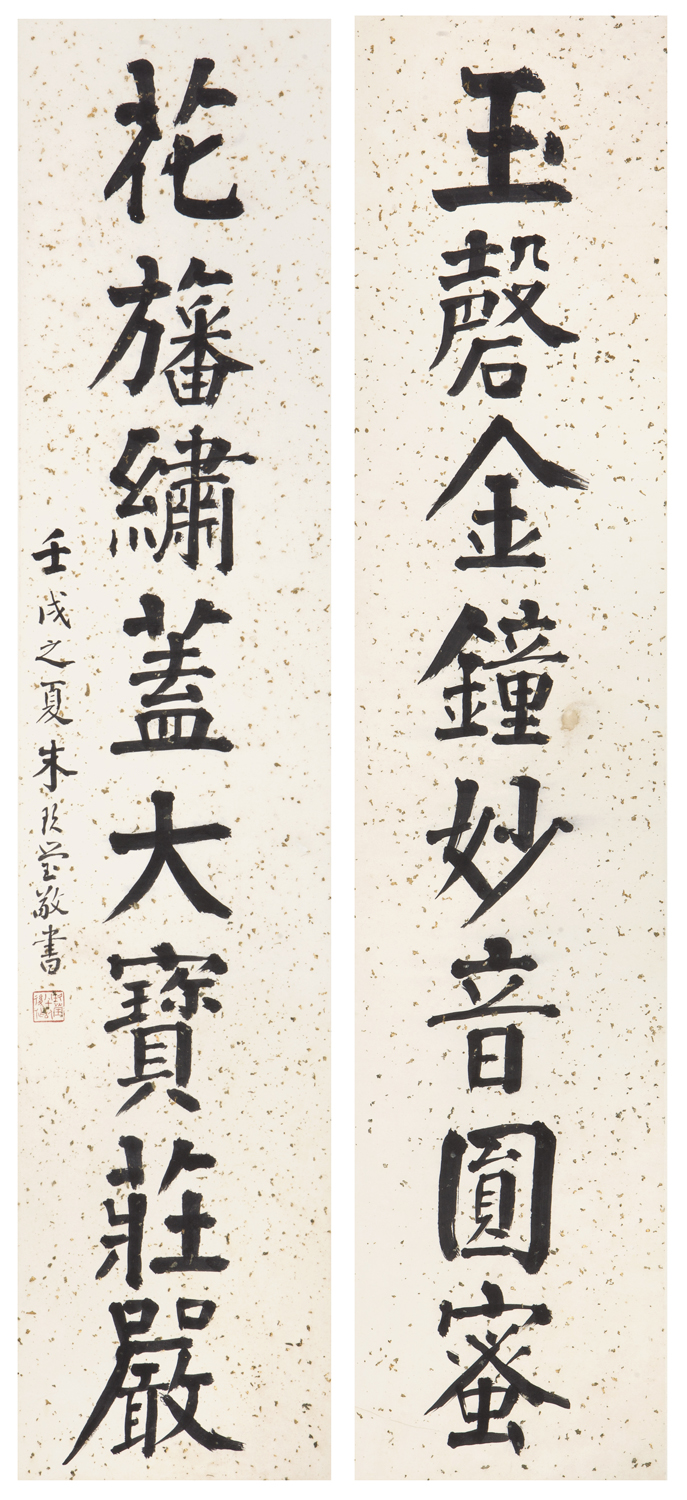 玉磬金鐘妙音圓蜜
花旛繡蓋大寶莊嚴
壬戌之夏朱玖瑩敬書